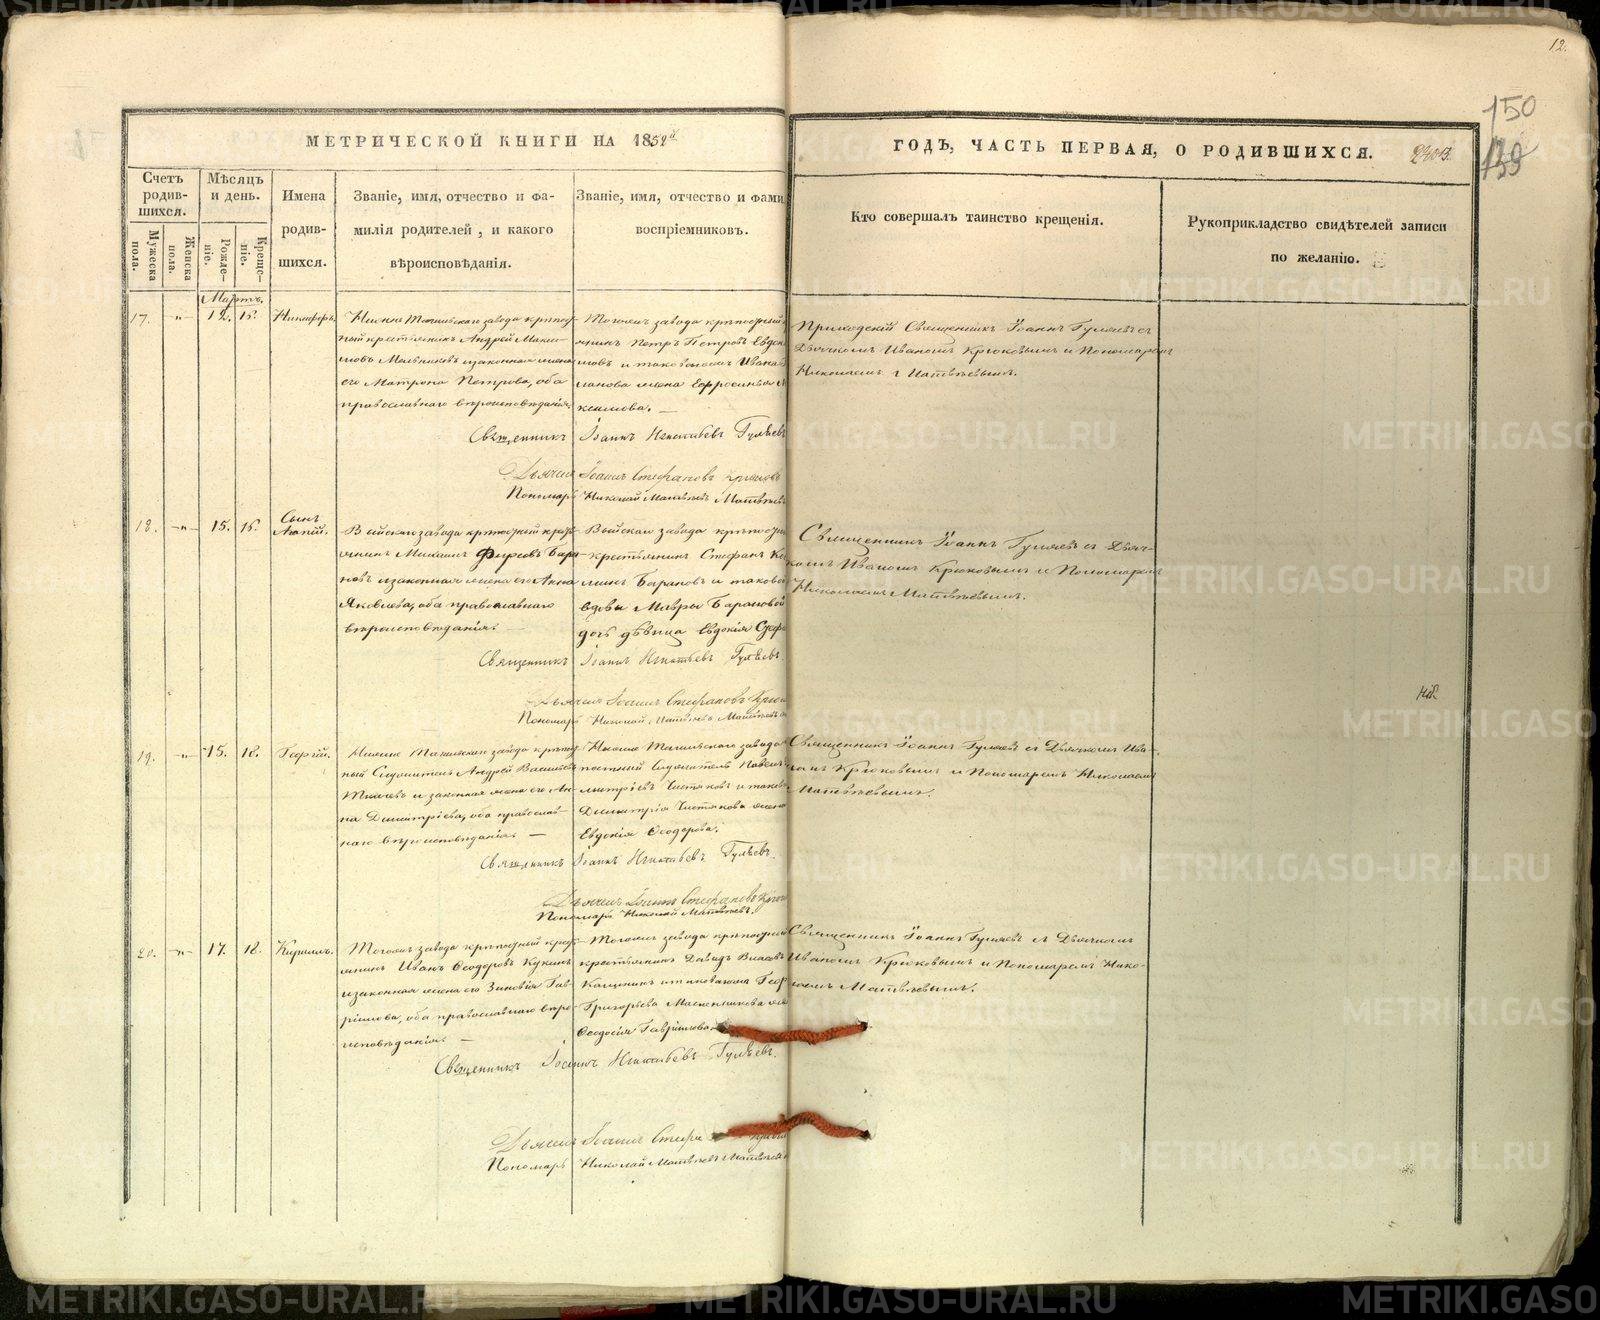 12.
150
139
МЕТРИЧЕСКОЙ КНИГИ НА 1852й
ГОДЪ, ЧАСТЬ ПЕРВАЯ, О РОДИВШИХСЯ.
Счетъ родив-шихся.
Мужеска пола.
Женска пола.
Мѣсяцъ и день.
Рожде-ніе.
Креще-ніе.
Имена
родив-
шихся.
Званіе, имя, отчество и фа-
милія родителей, и какого
вѣроисповѣданія.
Званіе, имя, отчество и фами
воспріемниковъ.
Кто совершалъ таинство крещенія.
Рукоприкладство свидѣтелей записи
по желанію.
Мартъ.
17. -"- 12. 15. Никифоръ.
Нижне Тагильскаго завода крѣпост
ный крестьянинъ Андрей Макси-
мовъ Мельниковъ и законная жена
его Матрона Петрова, оба
православнаго вѣроисповѣданія.
Тогожъ завода крѣпостный
янинъ Петръ Петровъ Евдок
имовъ и таковагожъ Ивана
панова жена Ефросинья М
ксимова.
Приходскій Священникъ Іоаннъ Гуляевъ съ
Дьячкомъ Иваномъ Крюковымъ и Пономаремъ
Николаемъ Матвѣевымъ.
Священникъ Іоаннъ Игнатьевъ Гуляевъ
Дьячекъ Іоаннъ Стефановъ Крюковъ
Пономарь Николай Матвѣевъ Матвѣевъ
18. -"- 15. 15. Сынъ
Агапій.
Выйскаго завода крѣпостный крест
янинъ Михаилъ Фирсовъ Бара
новъ и законная жена его Анна
Яковлева, оба православнаго
вѣроисповѣданія.
Выйскаго завода крѣпостн
крестьянинъ Стефанъ
Барановъ и таковой
вдовы Мавры Барановой
дочь дѣвица Евдокія
Священникъ Іоаннъ Гуляевъ съ Дьяч-
комъ Иваномъ Крюковымъ и Пономаремъ
Николаемъ Матвѣевымъ.
Священникъ Іоаннъ Игнатьевъ Гуляевъ.
Дьячекъ Іоаннъ Стефановъ Крюк
Пономарь Николай Матвѣевъ Матвѣевъ
19. -"- 15. 18. Георгій.
Нижне Тагильскаго завода крѣпост
ный Служитель Андрей Васильевъ
Ткачевъ и законная жена его Ан-
на Димитріева, оба православ-
наго вѣроисповѣданія.
Нижне Тагильскаго завода
постный Служитель Павелъ
митріевъ Чистяковъ и таков
Димитрія Чистякова жена
Евдокія Ѳеодорова.
Священникъ Іоаннъ Гуляевъ съ Дьячкомъ Ива-
номъ Крюковымъ и Пономаремъ Николаемъ
Матвѣевымъ.
Священникъ Іоаннъ Игнатьевъ Гуляевъ.
Дьячекъ Іоаннъ Стефановъ Крюк
Пономарь Николай Матвѣевъ.
20. -"- 17. 18. Кириллъ.
Тогожъ завода крѣпостный крест
янинъ Иванъ Ѳеодоровъ Кукинъ
и законная жена его Зиновія Гав-
рилова, оба православнаго вѣро-
исповѣданія.
Тогожъ завода крѣпостный
крестьянинъ Давидъ Власовъ
Калининъ и таковагожъ
Григорьева Масленникова
Ѳеодосія Гаврилова.
Священникъ Іоаннъ Гуляевъ съ Дьячкомъ
Иваномъ Крюковымъ и Пономаремъ Нико-
лаемъ Матвѣевымъ.
Священникъ Іоаннъ Игнатьевъ Гуляевъ.
Дьячекъ Іоаннъ Стефа
Пономарь Николай Матвѣевъ Матвѣевъ
METRIKI.GASO-URAL.RU